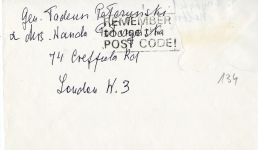 Gen. Tadeusz Pełczyński
& Mrs. Wanda
REMEMBER
to use the
POST CODE!
74 Creffield Rd
London W.3
134